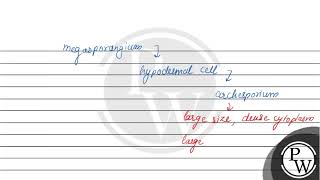 megasporangium ↓
hypodermal cell ↓
archesporium
↓
large size, dense cytoplasm
large
PW
PW